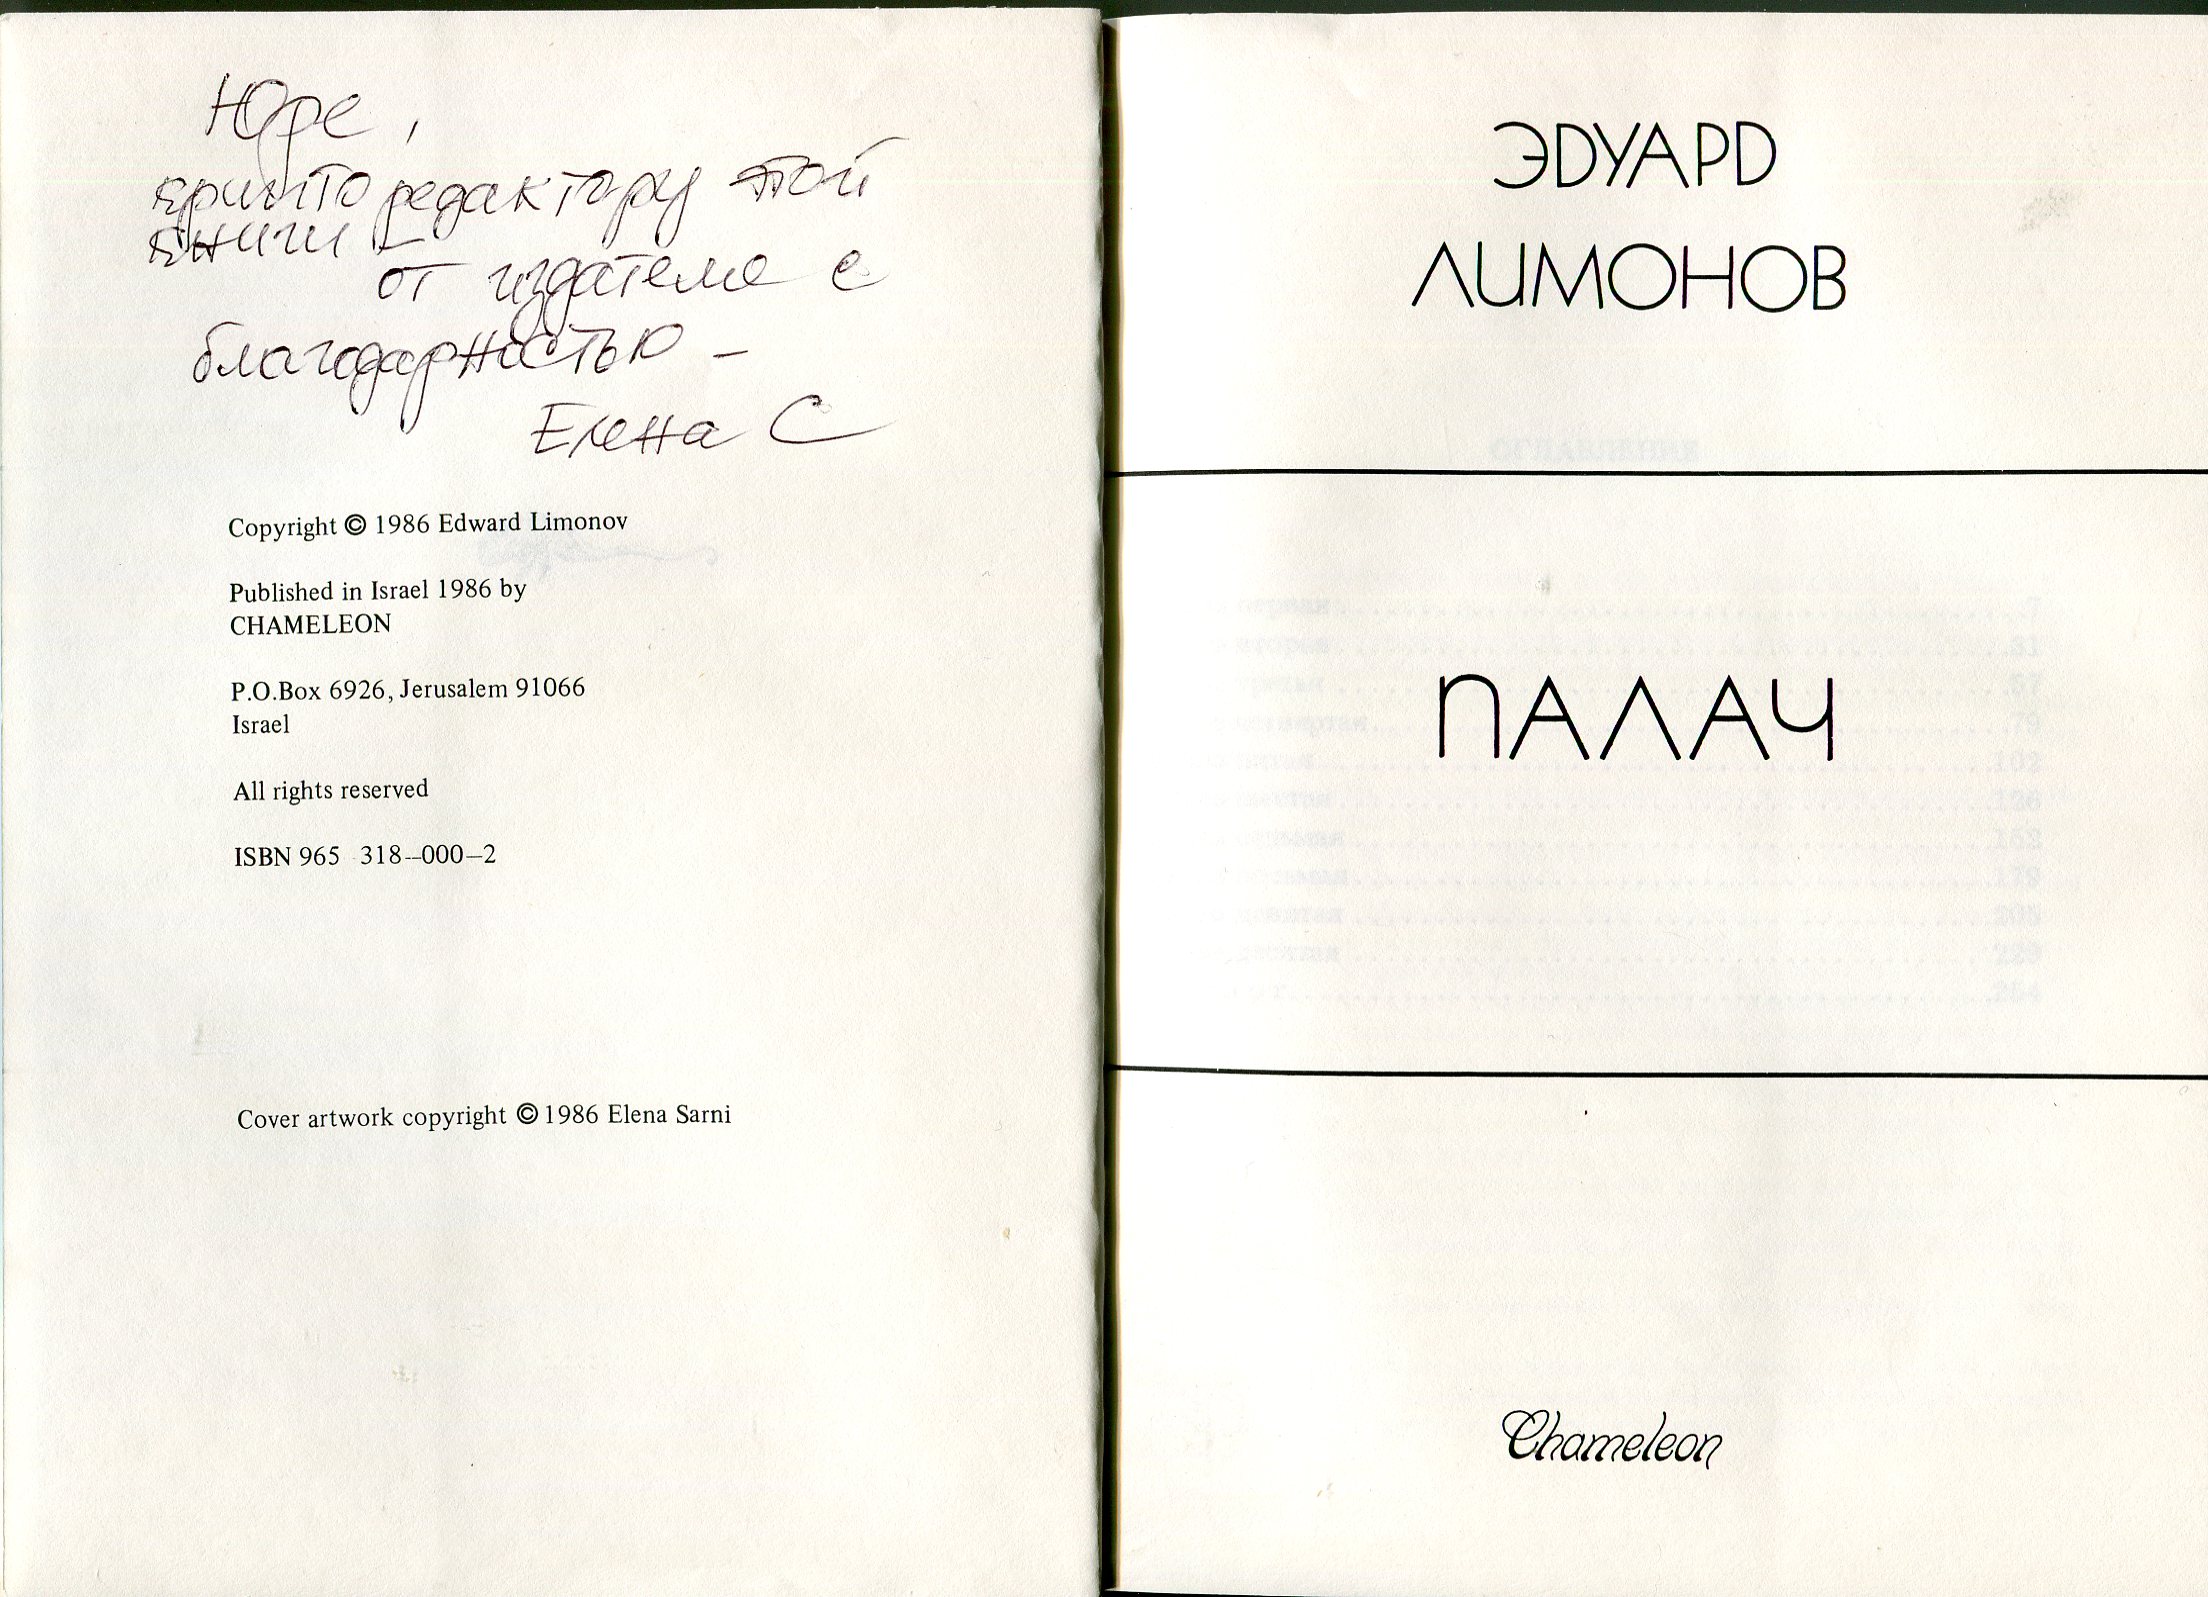 Юре,
крипто редактору этой
книги –
от издателя с
благодарностью –
Елена С
Copyright © 1986 Edward Limonov
Published in Israel 1986 by
CHAMELEON
P.O.Box 6926, Jerusalem 91066
Israel
All rights reserved
ISBN 965 318–000–2
Cover artwork copyright © 1986 Elena Sarni
ЭДУАРД
ЛИМОНОВ
ПАЛАЧ
Chameleon